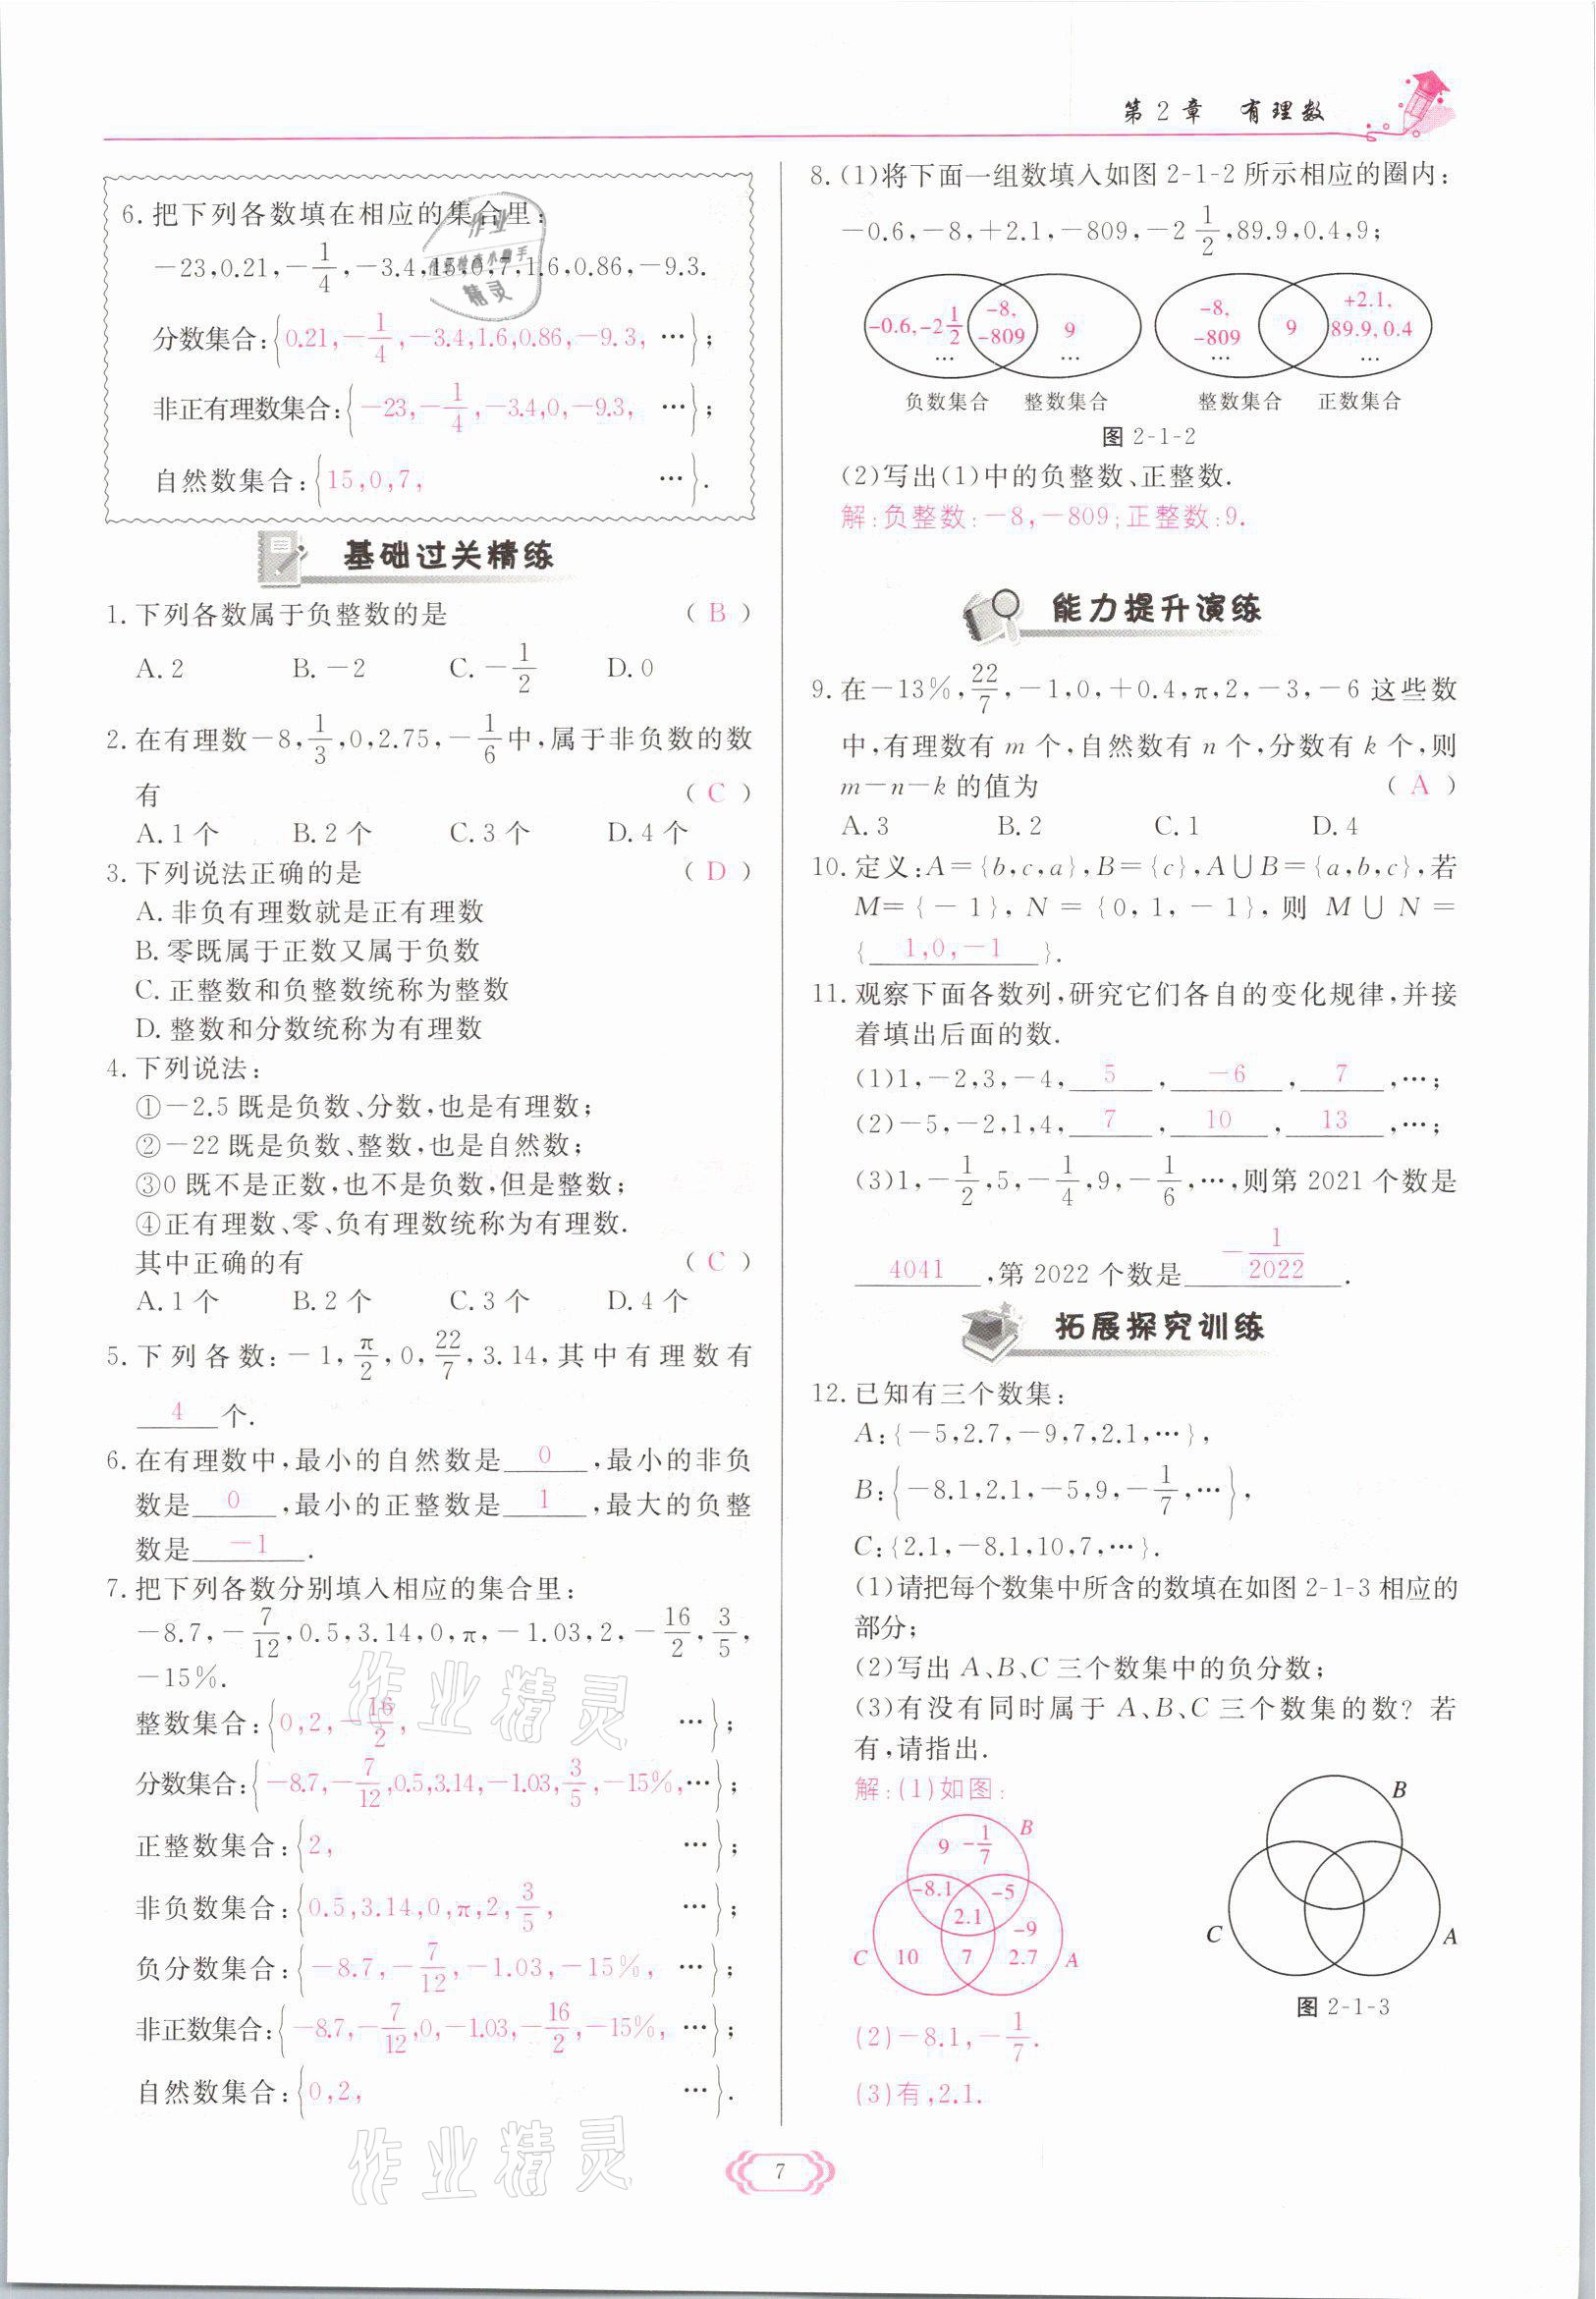 第2章 有理数
6. 把下列各数填在相应的集合里:
-23,0.21,-1/4,-3.4,15,0,7,1.6,0.86,-9.3.
分数集合:{0.21,-1/4,-3.4,1.6,0.86,-9.3, …};
非正有理数集合:{-23,-1/4,-3.4,0,-9.3, …};
自然数集合:{15,0,7, …}.
基础过关精练
1. 下列各数属于负整数的是 ( B )
A. 2 B. -2 C. -1/2 D. 0
2. 在有理数-8,1/3,0,2.75,-1/6中,属于非负数的数
有 ( C )
A. 1个 B. 2个 C. 3个 D. 4个
3. 下列说法正确的是 ( D )
A. 非负有理数就是正有理数
B. 零既属于正数又属于负数
C. 正整数和负整数统称为整数
D. 整数和分数统称为有理数
4. 下列说法:
①-2.5既是负数、分数,也是有理数;
②-22既是负数、整数,也是自然数;
③0既不是正数,也不是负数,但是整数;
④正有理数、零、负有理数统称为有理数.
其中正确的有 ( C )
A. 1个 B. 2个 C. 3个 D. 4个
5. 下列各数:-1,π/2,0,22/7,3.14,其中有理数有
4 个.
6. 在有理数中,最小的自然数是 0 ,最小的非负
数是 0 ,最小的正整数是 1 ,最大的负整
数是 -1 .
7. 把下列各数分别填入相应的集合里:
-8.7,-7/12,0.5,3.14,0,π,-1.03,2,-16/2,3/5,
-15%.
整数集合:{0,2,-16/2, …};
分数集合:{-8.7,-7/12,0.5,3.14,-1.03,3/5,-15%,…};
正整数集合:{2, …};
非负数集合:{0.5,3.14,0,π,2,3/5, …};
负分数集合:{-8.7,-7/12,-1.03,-15%, …};
非正数集合:{-8.7,-7/12,0,-1.03,-16/2,-15%, …};
自然数集合:{0,2, …}.
8. (1)将下面一组数填入如图2-1-2所示相应的圈内:
-0.6,-8,+2.1,-809,-2 1/2,89.9,0.4,9;
-0.6,-2 1/2 … -8, -809 9 …
-8, -809 … 9 +2.1, 89.9,0.4 …
负数集合 整数集合 整数集合 正数集合
图2-1-2
(2)写出(1)中的负整数、正整数.
解:负整数:-8,-809;正整数:9.
能力提升演练
9. 在-13%,22/7,-1,0,+0.4,π,2,-3,-6这些数
中,有理数有m个,自然数有n个,分数有k个,则
m-n-k的值为 ( A )
A. 3 B. 2 C. 1 D. 4
10. 定义:A={b,c,a},B={c},A∪B={a,b,c},若
M={-1},N={0,1,-1},则 M∪N=
{ 1,0,-1 }.
11. 观察下面各数列,研究它们各自的变化规律,并接
着填出后面的数.
(1)1,-2,3,-4, 5 , -6 , 7 ,…;
(2)-5,-2,1,4, 7 , 10 , 13 ,…;
(3)1,-1/2,5,-1/4,9,-1/6,…,则第2021个数是
4041 ,第2022个数是 -1/2022 .
拓展探究训练
12. 已知有三个数集:
A:{-5,2.7,-9,7,2.1,…},
B:{-8.1,2.1,-5,9,-1/7,…},
C:{2.1,-8.1,10,7,…}.
(1)请把每个数集中所含的数填在如图2-1-3相应的
部分;
(2)写出A、B、C三个数集中的负分数;
(3)有没有同时属于A、B、C三个数集的数?若
有,请指出.
解:(1)如图:
B
9 -1/7
-8.1 -5
2.1
-9
C 10 7 2.7 A
B
C A
图2-1-3
(2)-8.1,-1/7.
(3)有,2.1.
7
作业精灵
作业精灵